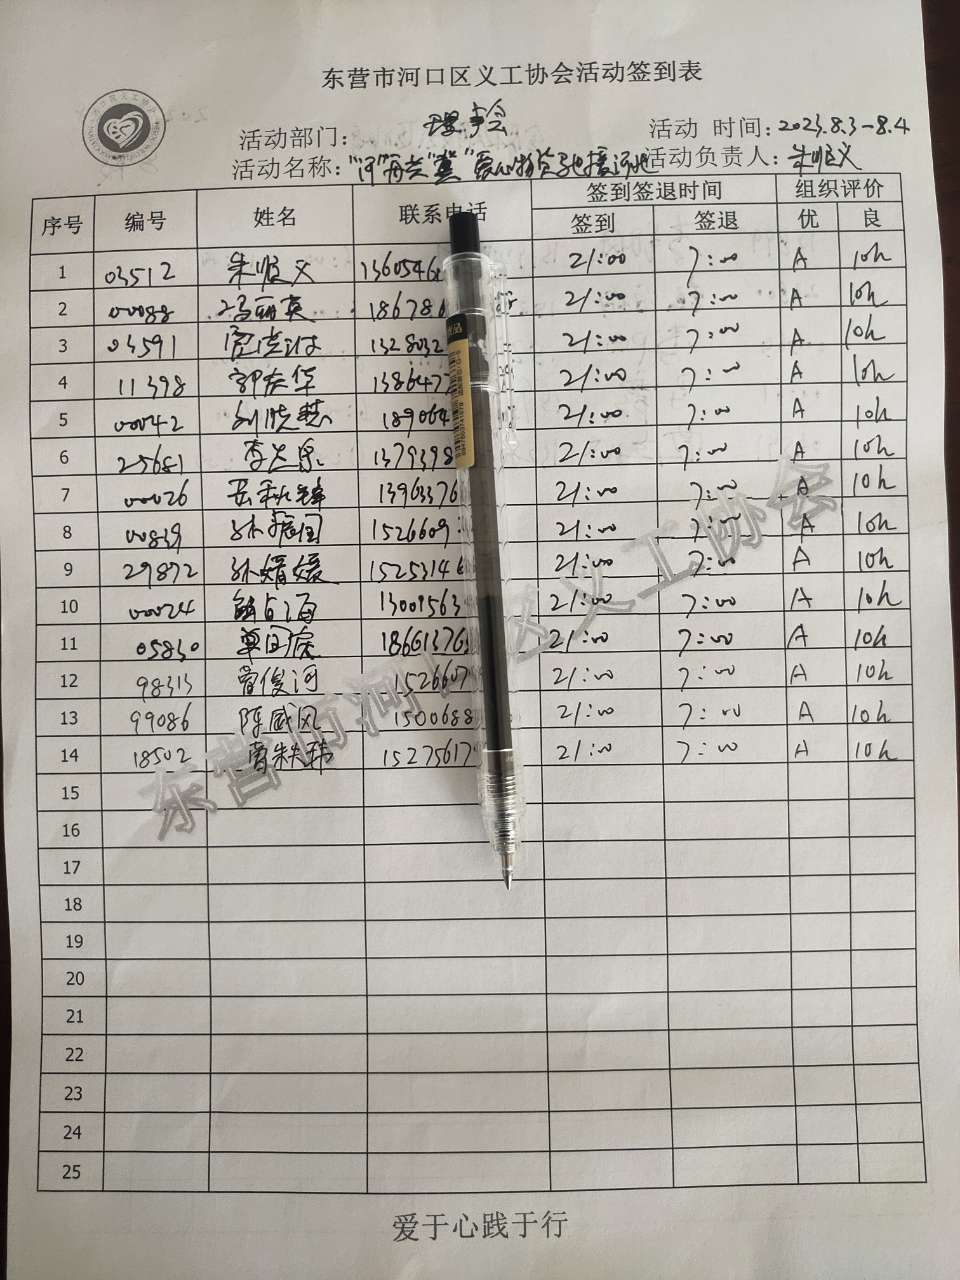 东营市河口区义工协会活动签到表
活动部门： 理事会
活动 时间：2023.8.3-8.4
活动名称：
活动负责人：朱顺义
序号 编号 姓名 联系电话 签到签退时间 组织评价
签到 签退 优 良
1 03512 朱顺义 1360546 21:00 7:00 A 10h
2 00088 冯丽英 186786 21:00 7:00 A 10h
3 03591 1328032 21:00 7:00 A 10h
4 11398 郭庆华 1386472 21:00 7:00 A 10h
5 00042 刘晓慧 189064 21:00 7:00 A 10h
6 25681 李兰泉 1379398 21:00 7:00 A 10h
7 00026 岳秋锋 13963376 21:00 7:00 A 10h
8 00839 21:00 7:00 A 10h
9 29872 孙婧媛 15253146 21:00 7:00 A 10h
10 00024 13009563 21:00 7:00 A 10h
11 05830 18661376 21:00 7:00 A 10h
12 98313 曾俊河 1526607 21:00 7:00 A 10h
13 99086 陈威风 1500688 21:00 7:00 A 10h
14 18502 15275617 21:00 7:00 A 10h
15
16
17
18
19
20
21
22
23
24
25
东营市河口区义工协会
爱于心践于行